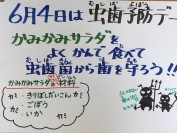 6月4日は虫歯予防デー
かみかみサラダを
よくかんで食べて
虫歯菌から歯を守ろう!!
かみかみサラダの材料
カミ
きりぼしだいこん
ごぼう
いか